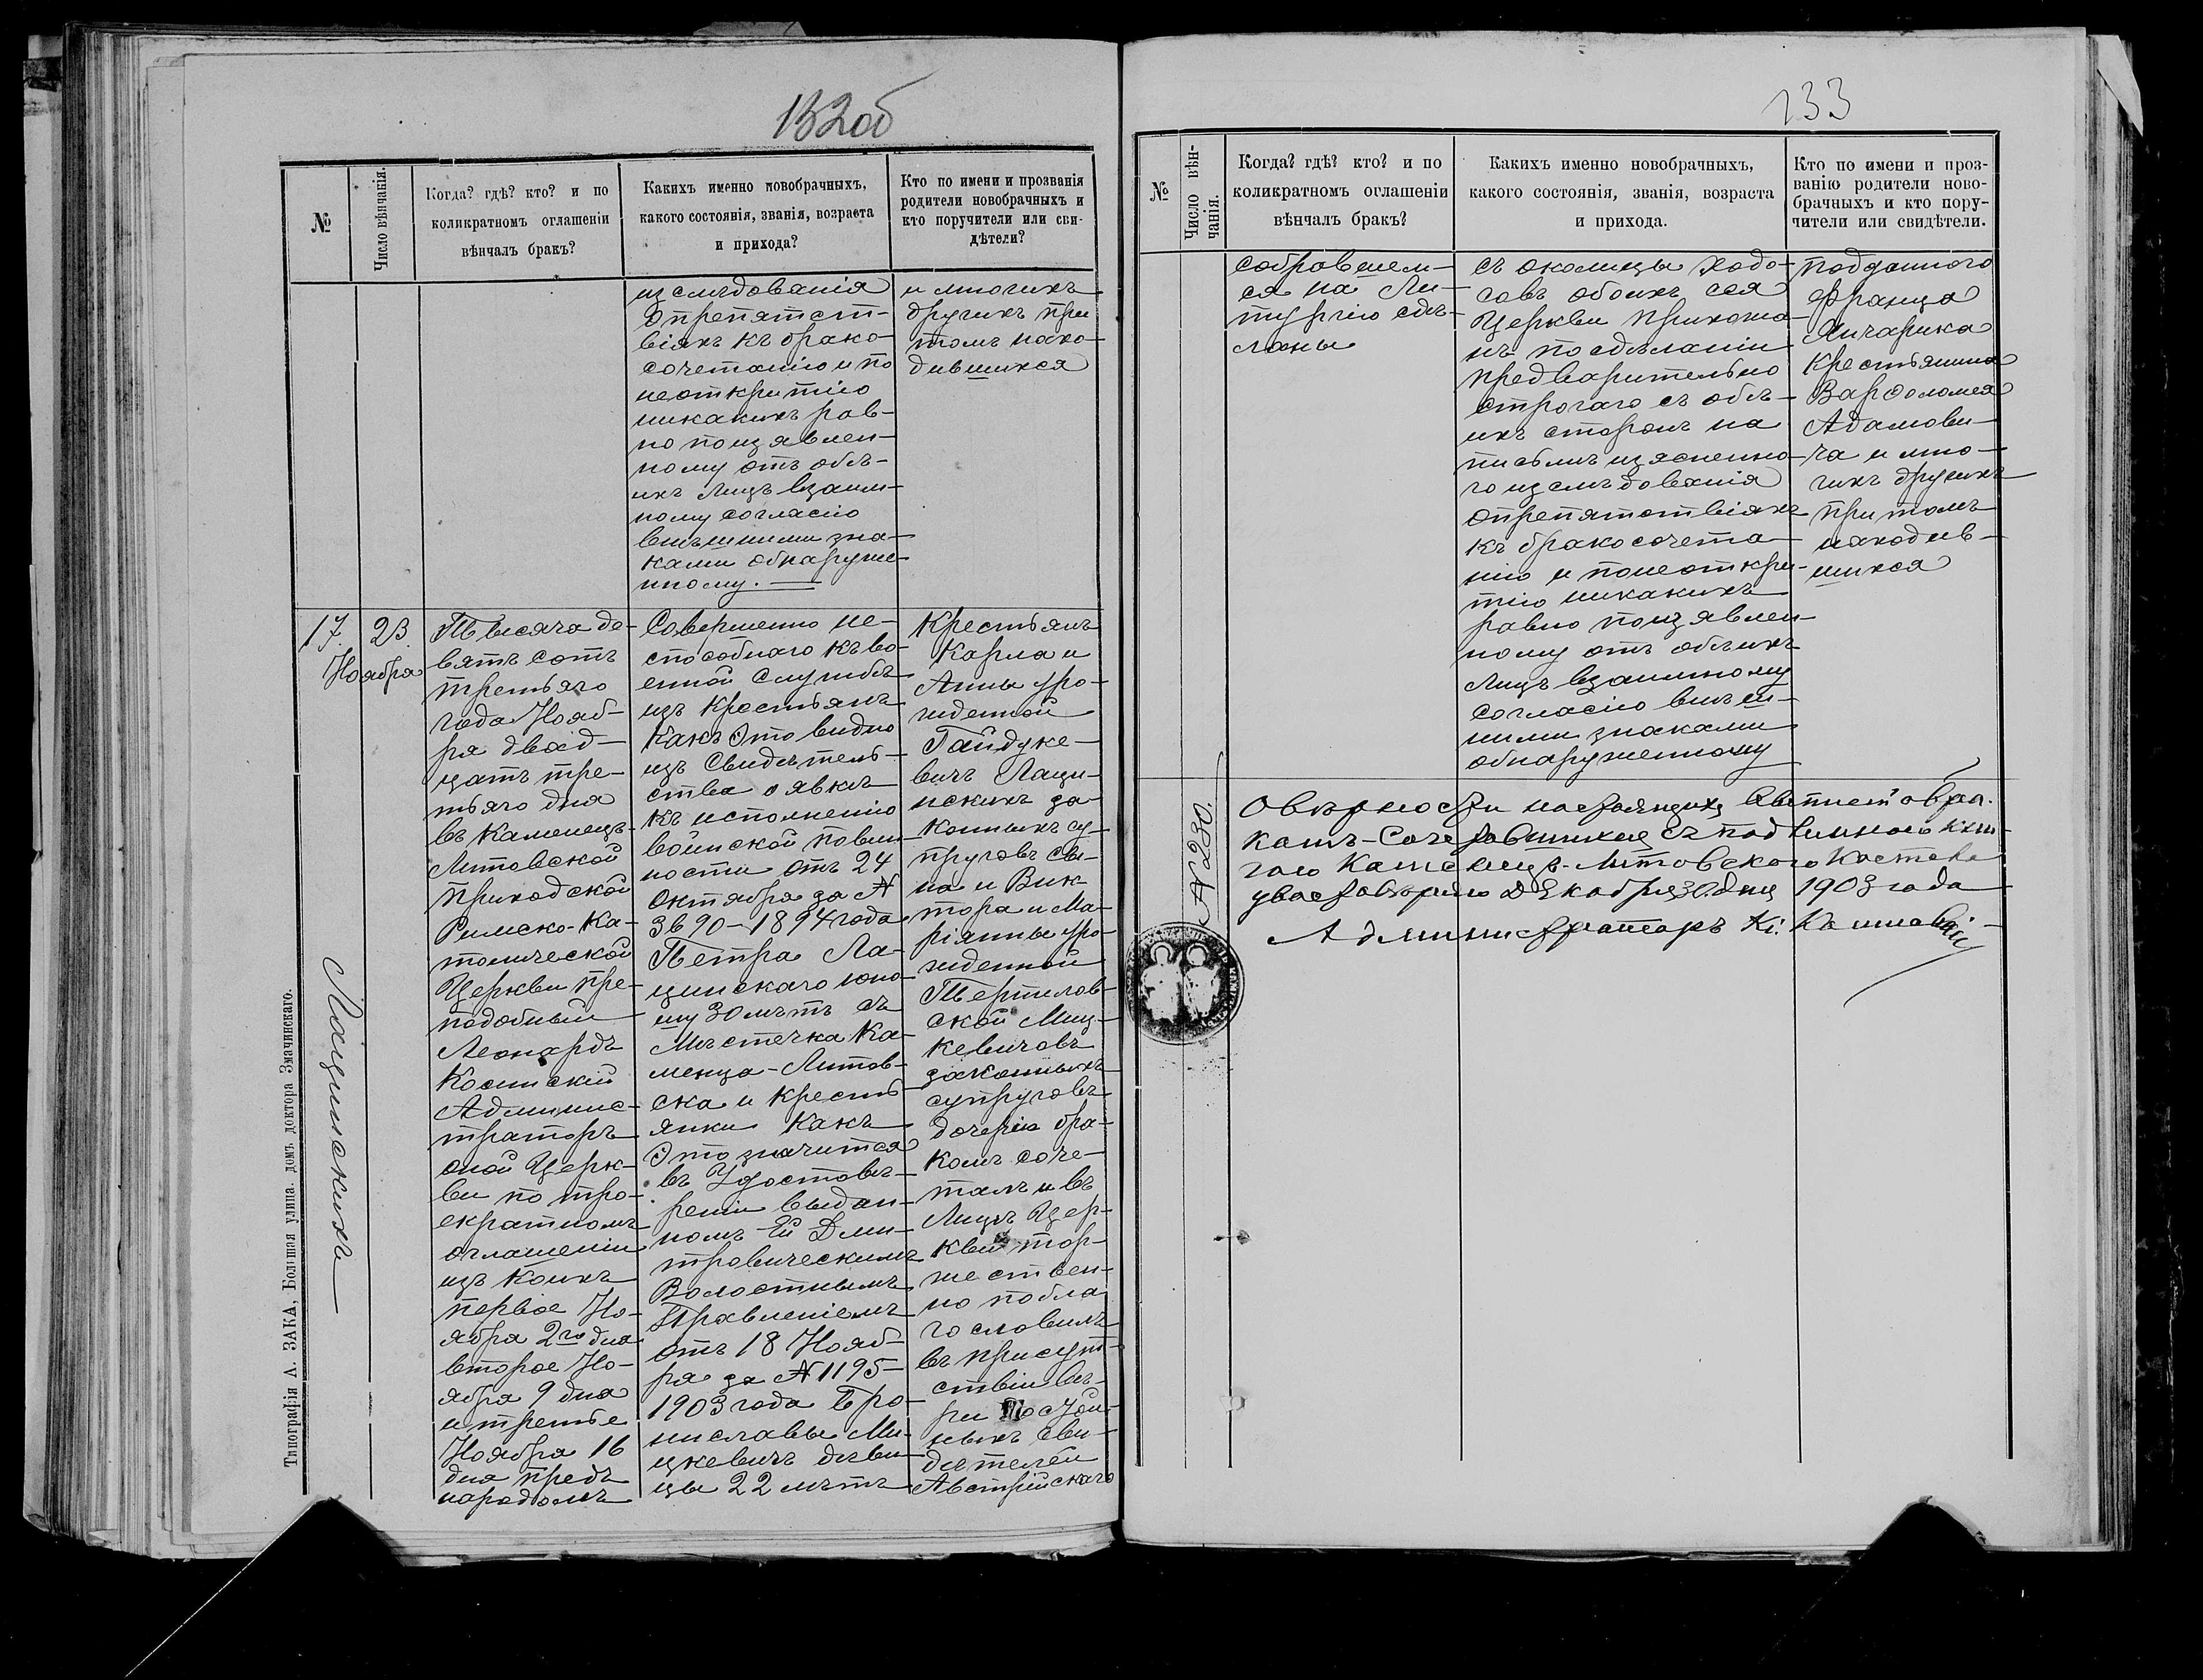 132об
№
Число вѣнчанія.
Когда? гдѣ? кто? и по
коликратномъ оглашеніи
вѣнчалъ бракъ?
Какихъ именно новобрачныхъ,
какого состоянія, званія, возраста
и прихода?
Кто по имени и прозванія
родители новобрачныхъ и
кто поручители или сви-
дѣтели?
изслѣдованія
о препятст-
віяхъ къ брако-
сочетанію и по
неоткритію
никакихъ рав-
но по изъявлен-
ному отъ обѣ-
ихъ лицъ взаим-
ному согласію
внѣшними зна-
ками обнаруже-
нному.
и многихъ
другихъ при
томъ нахо-
дившихся
17.
23.
Ноября
Лацинскихъ
Тысяча де-
вятъ сотъ
третьяго
года Нояб-
ря двад-
цатъ тре-
тьяго дня
въ Каменецъ-
Литовской
приходской
Римско-Ка-
толической
Церкви пре-
подобный
Леонардъ
Косинскій
Админис-
траторъ
оной Церк-
ви по тро-
екратномъ
оглашеніи
изъ коихъ
первое Но-
ября 2го дня
второе Но-
ября 9 дня
и третье
Ноября 16
дня предъ
народомъ
Совершенно не-
способнаго къ во-
енной службѣ
изъ крестьянъ
какъ Это видно
изъ Свидѣтель-
ства о явкѣ
къ исполненію
воинской повин-
ности отъ 24
Октября за №
3690-1894 года
Петра Ла-
цинскаго юно-
шу 30 лѣтъ съ
Мѣстечка Ка-
менца-Литов-
ска и кресть-
янки какъ
Это значится
въ Удостовѣ-
реніи выдан-
номъ Ей Дми-
тровическимъ
Волостнымъ
Правленіемъ
отъ 18 Нояб-
ря за № 1195-
1903 года Бро-
ниславы Ми-
цкевичъ дѣви-
цы 22 лѣтъ
Крестьянъ
Карла и
Анны уро-
жденной
Гайдуке-
вичъ Лаци-
нскихъ за-
конныхъ су-
пруговъ сы-
на и Вик-
тора и Ма-
ріянны уро-
жденной
Тертилов-
ской Миц-
кевичовъ
законныхъ
супруговъ
дочерію бра-
комъ соче-
талъ и въ
Лицѣ Цер-
кви тор-
жествен-
но побла-
гословилъ
въ присут-
ствіи вѣ-
ры достой-
ныхъ Сви-
дѣтелей
Австрійскаго
Типографія А. ЗАКА, Большая улица. домъ доктора Змачинскаго.
133
№
Число вѣн-
чанія.
Когда? гдѣ? кто? и по
коликратномъ оглашеніи
вѣнчалъ бракъ?
Какихъ именно новобрачныхъ,
какого состоянія, званія, возраста
и прихода.
Кто по имени и проз-
ванію родители ново-
брачныхъ и кто пору-
чители или свидѣтели.
собравшем-
ся на Ли-
тургію сдѣ-
ланы
съ околицы Ходо-
совъ обоихъ сея
Церкви прихожа-
нъ по сдѣланіи
предварительно
строгаго съ обѣ-
ихъ сторонъ на
писъмѣ изясненно-
го изслѣдованія
о препятствіяхъ
къ бракосочета-
нію и по неоткри-
тію никакихъ
равно по изъявлен-
ному отъ обѣихъ
лицъ взаимному
согласію внѣш-
ними знаками
обнаруженному
подданного
Франца
Личарика
крестьянина
Варфоломея
Адамови-
ча и мно-
гихъ другихъ
при томъ
находив-
шихся
№ 230.
О вѣрности настоящихъ
комъ-Сочетавшихся съ подлинною кни-
гою Каменецъ-Литовского Костела
удостовѣряю Декабря 30 дня 1903 года
Администраторъ Кс.